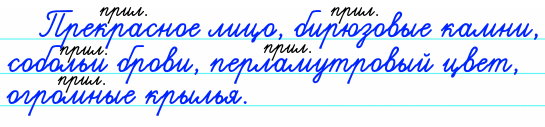 прил. прил.
Прекрасное лицо, бирюзовые камни,
прил. прил.
собольи брови, перламутровый цвет,
прил.
огромные крылья.